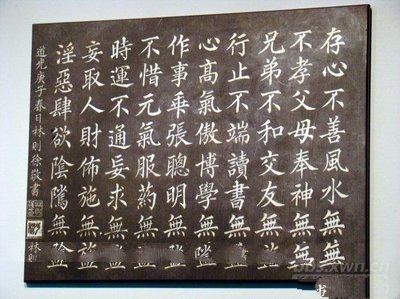 存心不善風水無
不孝父母奉神無
兄弟不和交友無益
行止不端讀書無
心高氣傲博學無益
作事乖張聰明無益
不惜元氣服葯無益
時運不通妄求無益
妄取人財佈施無益
淫惡肆欲陰騭無益
道光庚子春日林則徐敬書
林則
bbs.xwn.cn